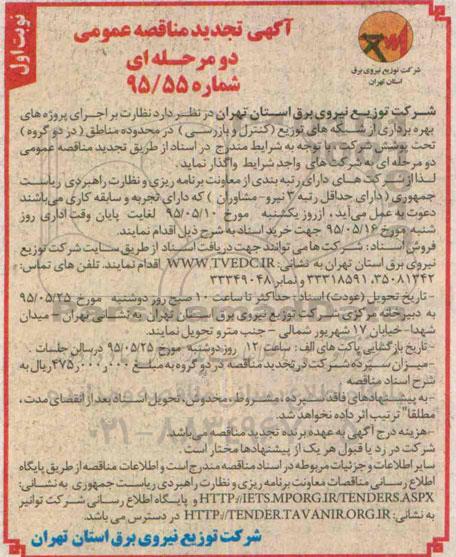 نوبت اول
آگهی تجدید مناقصه عمومی
دو مرحله ای
شماره ۹۵/۵۵
شرکت توزیع نیروی برق
استان تهران
شرکت توزیع نیروی برق استان تهران در نظر دارد نظارت بر اجرای پروژه های
بهره برداری از شبکه های توزیع (کنترل و بازرسی) در محدوده مناطق (در دو گروه)
تحت پوشش شرکت، با توجه به شرایط مندرج در اسناد از طریق تجدید مناقصه عمومی
دو مرحله ای به شرکت های واجد شرایط واگذار نماید.
لذا از شرکت های دارای رتبه بندی از معاونت برنامه ریزی و نظارت راهبردی ریاست
جمهوری (دارای حداقل رتبه ۳ نیرو-مشاوران) که دارای تجربه و سابقه کاری می باشند
دعوت به عمل می آید، از روز یکشنبه مورخ ۹۵/۰۵/۱۰ لغایت پایان وقت اداری روز
شنبه مورخ ۹۵/۰۵/۱۶ جهت خرید اسناد به شرح ذیل اقدام نمایند.
فروش اسناد: شرکت ها می توانند جهت دریافت اسناد از طریق سایت شرکت توزیع
نیروی برق استان تهران به نشانی: WWW.TVEDC.IR اقدام نمایند. تلفن های تماس:
۳۵۰۸۱۳۴۲، ۳۳۳۱۸۵۹۱ و نمابر ۳۳۳۴۹۰۴۸
- تاریخ تحویل (عودت) اسناد: حداکثر تا ساعت ۱۰ صبح روز دوشنبه مورخ ۹۵/۰۵/۲۵
به دبیرخانه مرکزی شرکت توزیع نیروی برق استان تهران به نشانی تهران - میدان
شهدا- خیابان ۱۷ شهریور شمالی - جنب مترو تحویل نمایند.
- تاریخ بازگشایی پاکت های الف: ساعت ۱۲ روز دوشنبه مورخ ۹۵/۰۵/۲۵ در سالن جلسات.
- میزان سپرده شرکت در تجدید مناقصه در دو گروه به مبلغ ۴۷۵٫۰۰۰٫۰۰۰ ریال به
شرح اسناد مناقصه
- به پیشنهادهای فاقد سپرده، مشروط، مخدوش، تحویل اسناد بعد از انقضای مدت،
مطلقا" ترتیب اثر داده نخواهد شد.
- هزینه درج آگهی به عهده برنده تجدید مناقصه می باشد.
شرکت در رد یا قبول هر یک از پیشنهادها مختار است.
سایر اطلاعات و جزئیات مربوطه در اسناد مناقصه مندرج است و اطلاعات مناقصه از طریق پایگاه
اطلاع رسانی مناقصات معاونت برنامه ریزی و نظارت راهبردی ریاست جمهوری به نشانی:
HTTP://IETS.MPORG.IR/TENDERS.ASPX و پایگاه اطلاع رسانی شرکت توانیر
به نشانی: HTTP://TENDER.TAVANIR.ORG.IR در دسترس می باشد.
شرکت توزیع نیروی برق استان تهران